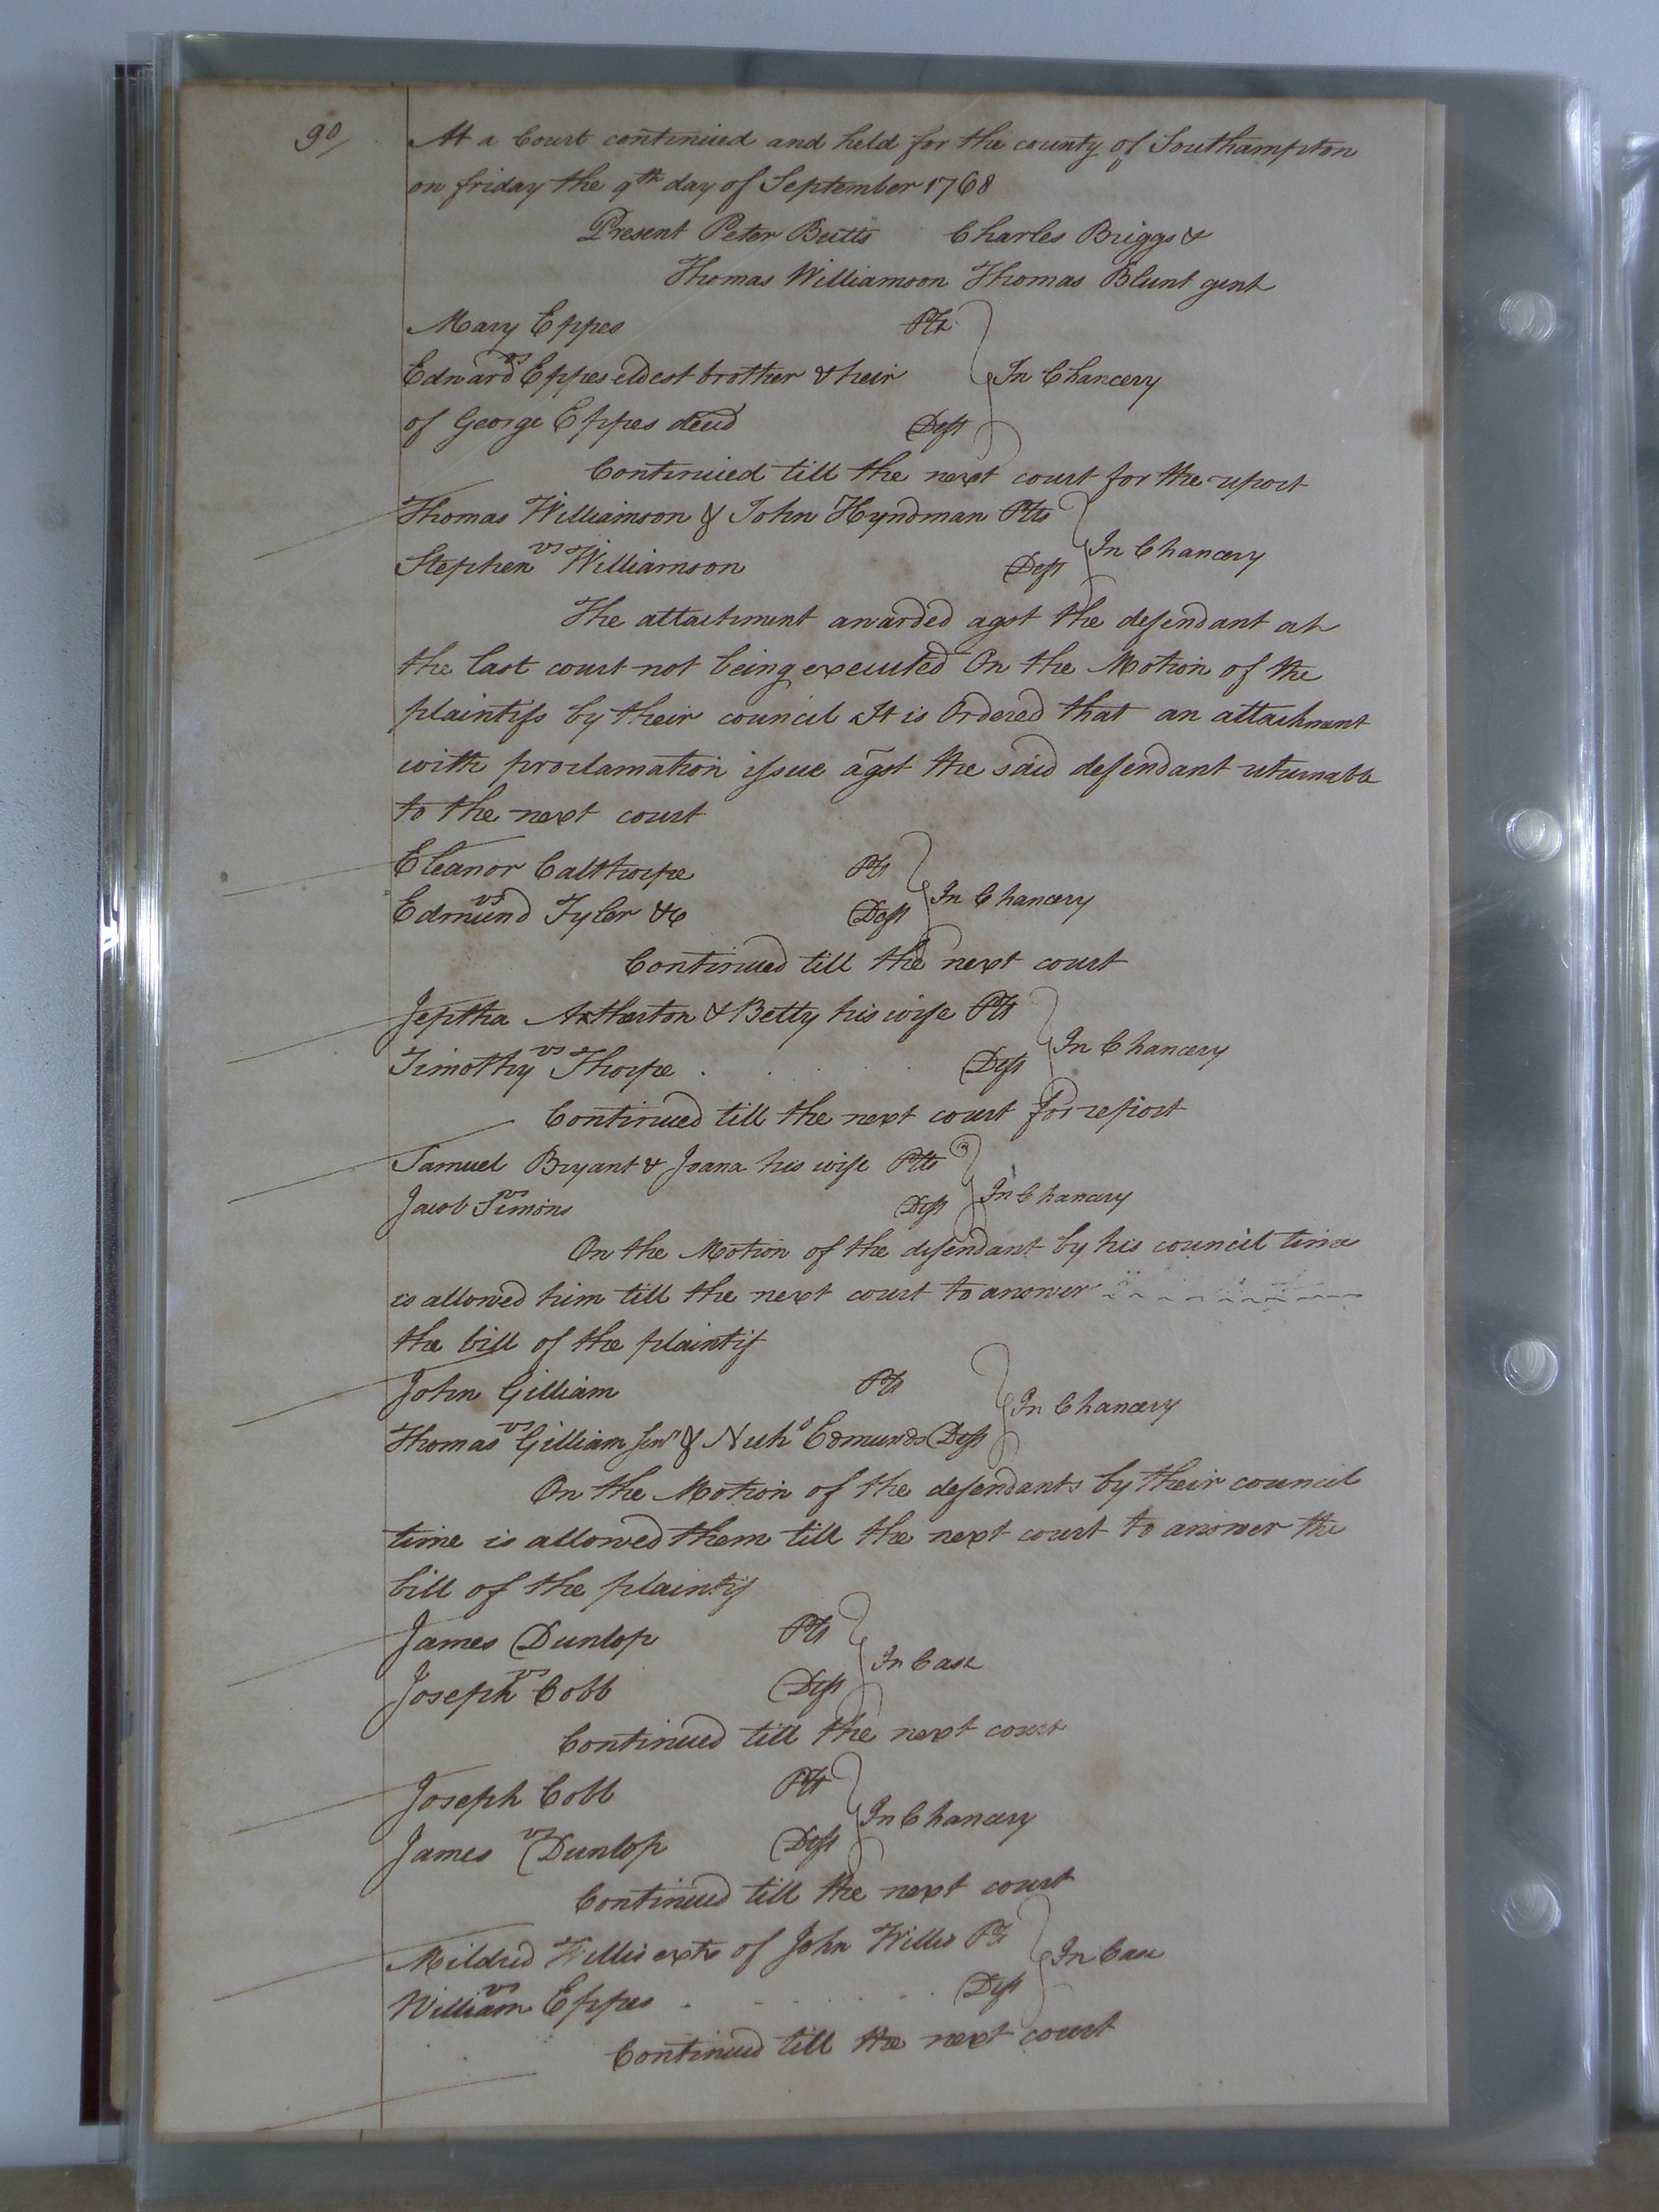 90/
At a Court continued and held for the county of Southampton
on friday the 9th day of September 1768
Present Peter Butts Charles Briggs &
Thomas Williamson Thomas Blunt gent
Mary Eppes Plt
vs
Edward Eppes eldest brother & heir In Chancery
of George Eppes decd Deft
Continued till the next court for the report
Thomas Williamson & John Hyndman Plts
vs In Chancery
Stephen Williamson Deft
The attachment awarded agst the defendant at
the last court not being executed On the Motion of the
plaintifs by their council It is Ordered that an attachment
with proclamation issue agst the said defendant returnable
to the next court
Eleanor Calthorpe Plt
vs In Chancery
Edmund Tyler &c Deft
Continued till the next court
Jeptha Atherton & Betty his wife Plt
vs In Chancery
Timothy Thorpe Deft
Continued till the next court for report
Samuel Bryant & Joana his wife Plts
vs In Chancery
Jacob Simons Deft
On the Motion of the defendant by his council time
is allowed him till the next court to answer
the bill of the plaintif
John Gilliam Plt
vs In Chancery
Thomas Gilliam senr & Nichs Edmunds Deft
On the Motion of the defendants by their council
time is allowed them till the next court to answer the
bill of the plaintif
James Dunlop Plt
vs In Case
Joseph Cobb Deft
Continued till the next court
Joseph Cobb Plt
vs In Chancery
James Dunlop Deft
Continued till the next court
Mildred Willis extx of John Willis Plt
vs In Case
William Eppes Deft
Continued till the next court